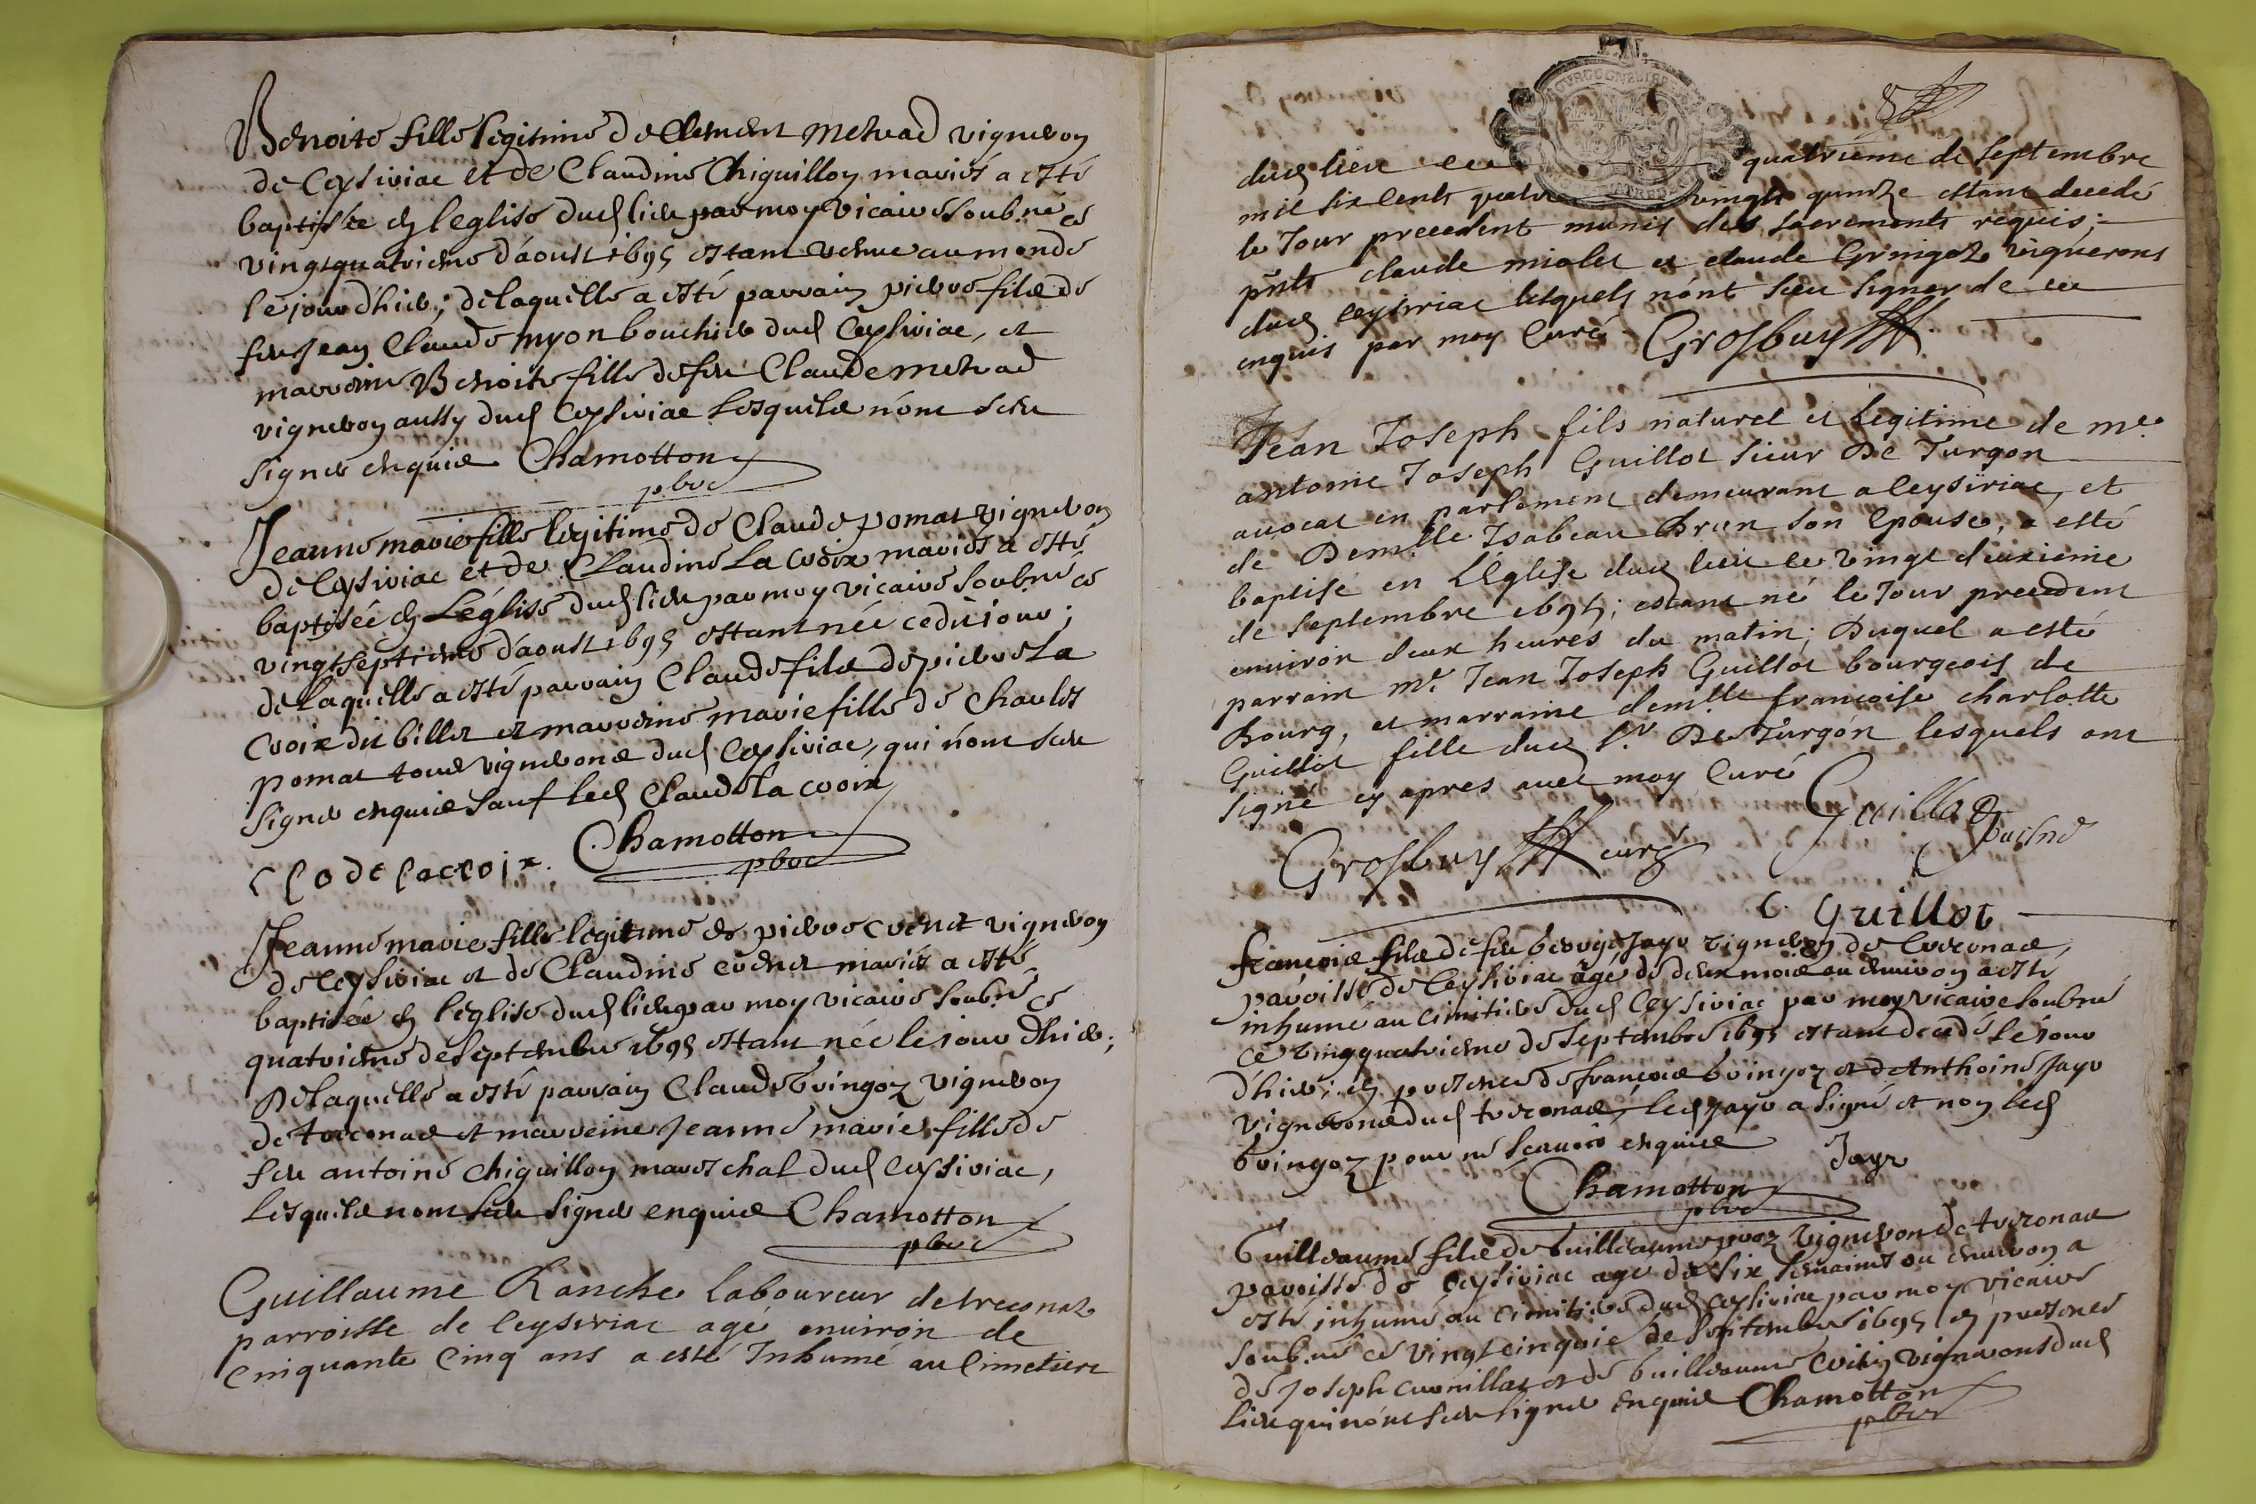 Benoite fille legitime de Clement metrad vigneron
de Ceysiriac et de Claudine Chiguillon mariés a esté
baptisée en leglise dud lieu par moy vicaire soubné ce
vingtquatrieme d'aoust 1695 estant venue au monde
le jour d'hier; de laquelle a esté parrain pierre fils de
feu Jean Claude myon bouchier dud Ceysiriac, et
marreine Benoite fille de feu Claude metrad
vigneron aussy dud Ceysiriac lesquels n'ont sceu
signer enquis Chamotton
pbre
Jeanne marie fille legitime de Claude pomat vigneron
de Ceysiriac et de Claudine La croix mariés a esté
baptisée en Léglise dud lieu par moy vicaire soubné ce
vingtseptieme d'aoust 1695 estant née cedit jour;
de Laquelle a esté parrain Claude fils de pierre La
croix dit billet et marreine marie fille de Charles
pomat tous vignerons dud Ceysiriac, qui n'ont sceu
signer enquis sauf led Claude La croix
Chamotton
pbre
Clode Lacroix.
Jeanne marie fille legitime de pierre cvenet vigneron
de Ceysiriac et de Claudine cvenet mariés a esté
baptisée en l'eglise dud lieu par moy vicaire soubné ce
quatrieme de septembre 1695 estant née le jour d'hier;
De laquelle a esté parrain Claude Gringoz vigneron
de treconas et marreine Jeanne marie fille de
feu antoine chiguillon mareschal dud Ceysiriac,
Lesquels nont sceu signer enquis Chamotton
pbre
Guillaume Ranche laboureur de treconas
parroisse de Ceysiriac agé environ de
cinquante cinq ans a esté Inhumé au Cimetiere
dud lieu ce quatrieme de septembre
mil six cents quatre vingts quinze estant decedé
le Jour precedent munis des sacrements requis;
pnts claude miolet et claude Gringoz vignerons
dud ceysiriac lesquels n'ont sceu signer de ce
enquis par moy Curé Grosbuy
Jean Joseph fils naturel et legitime de me
antoine Joseph Guillot sieur De Turgon
avocat en parlement demeurant a Ceysiriac, et
de Demlle Isabeau Brun son Epouse, a esté
baptisé en L'Eglise dud lieu ce vingt deuxieme
de septembre 1695; estant né le Jour precedent
environ deux heures du matin; Duquel a esté
parrain mr. Jean Joseph Guillot bourgeois de
Bourg, et marraine demlle francoise charlotte
Guillot fille dud Sr De Turgon lesquels ont
signé cy apres avec moy Curé
Guillot
puisné
Grosbuy curé
C. Guillot
francois fils de feu George Jayr vigneron de treconas,
paroisse de Ceysiriac agé de deux mois ou environ a esté
inhumé au cimitiere dud Ceysiriac par moy vicaire soubné
ce vingquatrieme de septembre 1695 estant decedé le jour
d'hier; en presence de francois Gringoz et de Anthoine Jayr
vignerons dud treconas, led Jayr a signé et non led
Gringoz pour ne scavoir enquis
Jayr
Chamotton
pbre
Guilleaume fils de Guilleaume vigneron de treconas
paroisse de Ceysiriac agé de six semaines ou environ a
esté inhumé au cimitiere dud Ceysiriac par moy vicaire
soubné ce vingtcinquie de septembre 1695 en presence
de Joseph cuvnillat et de Guilleaume vignerons dud
lieu qui n'ont sceu signer enquis Chamotton
pbre